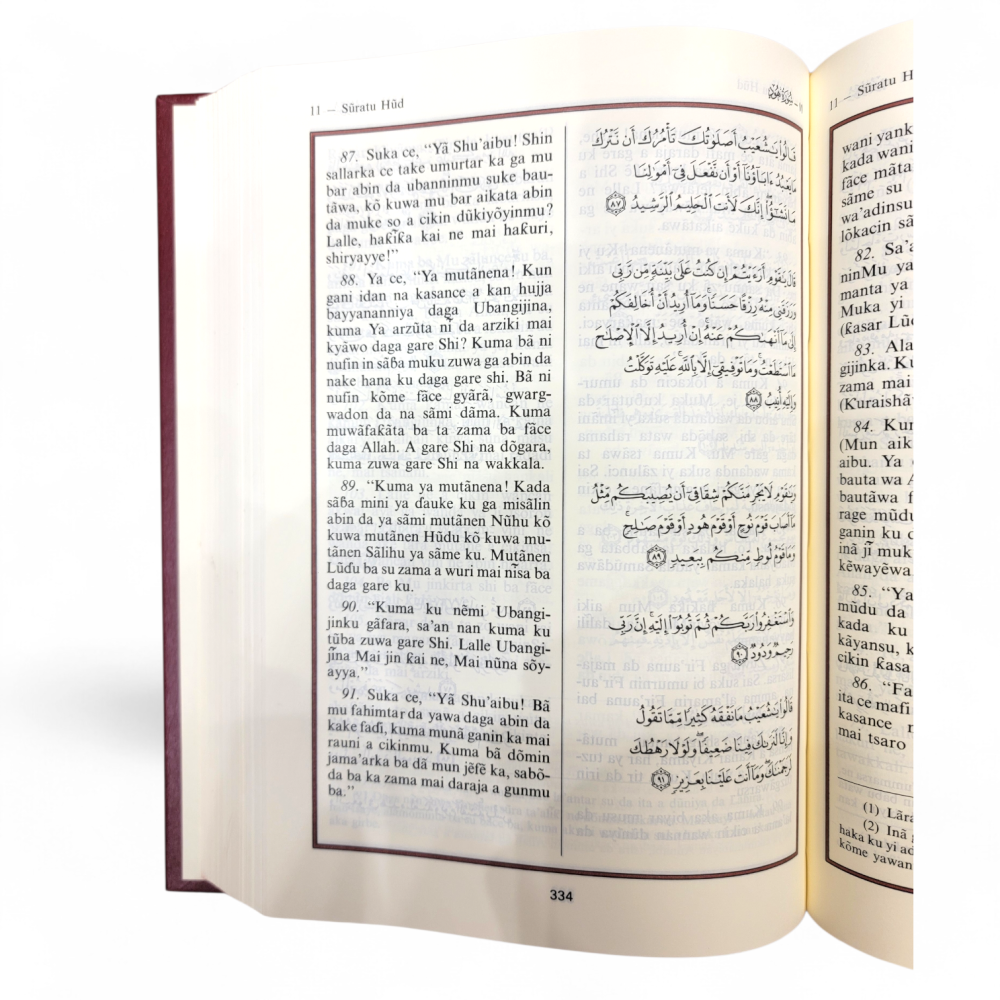 11 — Sūratu Hūd
87. Suka ce, “Yā Shu’aibu! Shin
sallarka ce take umurtar ka ga mu
bar abin da ubanninmu suke bau-
tāwa, kō kuwa mu bar aikata abin
da muke so a cikin dūkiyōyinmu?
Lalle, haƙīƙa kai ne mai haƙuri,
shiryayye!”
88. Ya ce, “Ya mutānena! Kun
gani idan na kasance a kan hujja
bayyananniya daga Ubangijina,
kuma Ya arzūta nī da arziki mai
kyāwo daga gare Shi? Kuma bā ni
nufin in sāɓa muku zuwa ga abin da
nake hana ku daga gare shi. Bā ni
nufin kōme fāce gyārā, gwarg-
wadon da na sāmi dāma. Kuma
muwāfaƙāta ba ta zama ba fāce
daga Allah. A gare Shi na dōgara,
kuma zuwa gare Shi na wakkala.
89. “Kuma ya mutānena! Kada
sāɓa mini ya ɗauke ku ga misālin
abin da ya sāmi mutānen Nūhu kō
kuwa mutānen Hūdu kō kuwa mu-
tānen Sālihu ya sāme ku. Mutānen
Lūɗu ba su zama a wuri mai nīsa ba
daga gare ku.
90. “Kuma ku nēmi Ubangi-
jinku gāfara, sa’an nan kuma ku
tūba zuwa gare Shi. Lalle Ubangi-
jīna Mai jin ƙai ne, Mai nūna sōy-
ayya.”
91. Suka ce, “Yā Shu’aibu! Bā
mu fahimtar da yawa daga abin da
kake faɗi, kuma munā ganin ka mai
rauni a cikinmu. Kuma bā dōmin
jama’arka ba dā mun jēfē ka, sabō-
da ba ka zama mai daraja a gunmu
ba.”
قَالُوا۟ يَٰشُعَيْبُ أَصَلَوٰتُكَ تَأْمُرُكَ أَن نَّتْرُكَ
مَا يَعْبُدُ ءَابَآؤُنَآ أَوْ أَن نَّفْعَلَ فِىٓ أَمْوَٰلِنَا
مَا نَشَٰٓؤُا۟ إِنَّكَ لَأَنتَ ٱلْحَلِيمُ ٱلرَّشِيدُ ﴿٨٧﴾
قَالَ يَٰقَوْمِ أَرَءَيْتُمْ إِن كُنتُ عَلَىٰ بَيِّنَةٍ مِّن رَّبِّى
وَرَزَقَنِى مِنْهُ رِزْقًا حَسَنًا وَمَآ أُرِيدُ أَنْ أُخَالِفَكُمْ
إِلَىٰ مَآ أَنْهَىٰكُمْ عَنْهُ إِنْ أُرِيدُ إِلَّا ٱلْإِصْلَٰحَ
مَا ٱسْتَطَعْتُ وَمَا تَوْفِيقِىٓ إِلَّا بِٱللَّهِ عَلَيْهِ تَوَكَّلْتُ
وَإِلَيْهِ أُنِيبُ ﴿٨٨﴾
وَيَٰقَوْمِ لَا يَجْرِمَنَّكُمْ شِقَاقِىٓ أَن يُصِيبَكُم مِّثْلُ
مَآ أَصَابَ قَوْمَ نُوحٍ أَوْ قَوْمَ هُودٍ أَوْ قَوْمَ صَٰلِحٍ
وَمَا قَوْمُ لُوطٍ مِّنكُم بِبَعِيدٍ ﴿٨٩﴾
وَٱسْتَغْفِرُوا۟ رَبَّكُمْ ثُمَّ تُوبُوٓا۟ إِلَيْهِ إِنَّ رَبِّى
رَحِيمٌ وَدُودٌ ﴿٩٠﴾
قَالُوا۟ يَٰشُعَيْبُ مَا نَفْقَهُ كَثِيرًا مِّمَّا تَقُولُ
وَإِنَّا لَنَرَىٰكَ فِينَا ضَعِيفًا وَلَوْلَا رَهْطُكَ
لَرَجَمْنَٰكَ وَمَآ أَنتَ عَلَيْنَا بِعَزِيزٍ ﴿٩١﴾
334
11 — Sūratu
wani
kada wani
fāce
sāme su
wa’adinsu
lōkacin
82.
Mu ya
manta ya
Muka yi
(ƙasar
83.
gijinka.
zama mai
84.
(Mun
aibu. Ya
bauta wa
bautāwa
rage
ganin ku
inā jī
kēwayēwa
85. “Ya
mūdu da
kada ku
kāyansu,
cikin ƙasa
86.
ita ce
kasance
mai tsaro
(1)
(2) Inā
haka ku yi
kōme